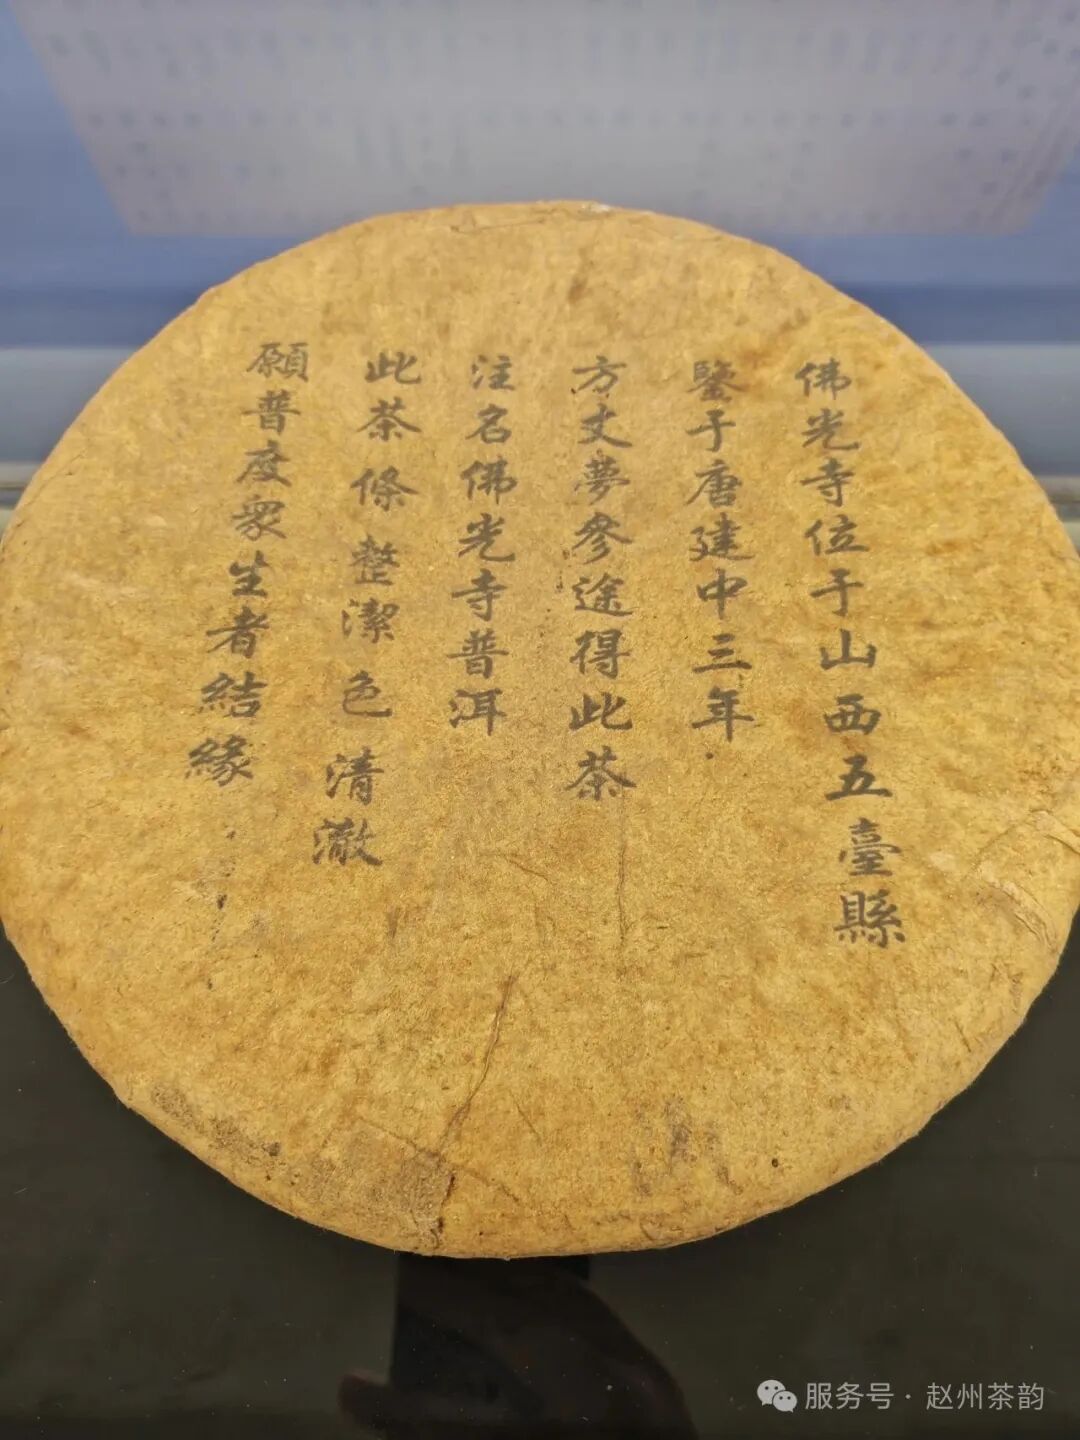 佛光寺位于山西五臺縣
鑒于唐建中三年
方丈夢參途得此茶
注名佛光寺普洱
此茶條整潔色清澈
願普度衆生者結緣
服务号·赵州茶韵